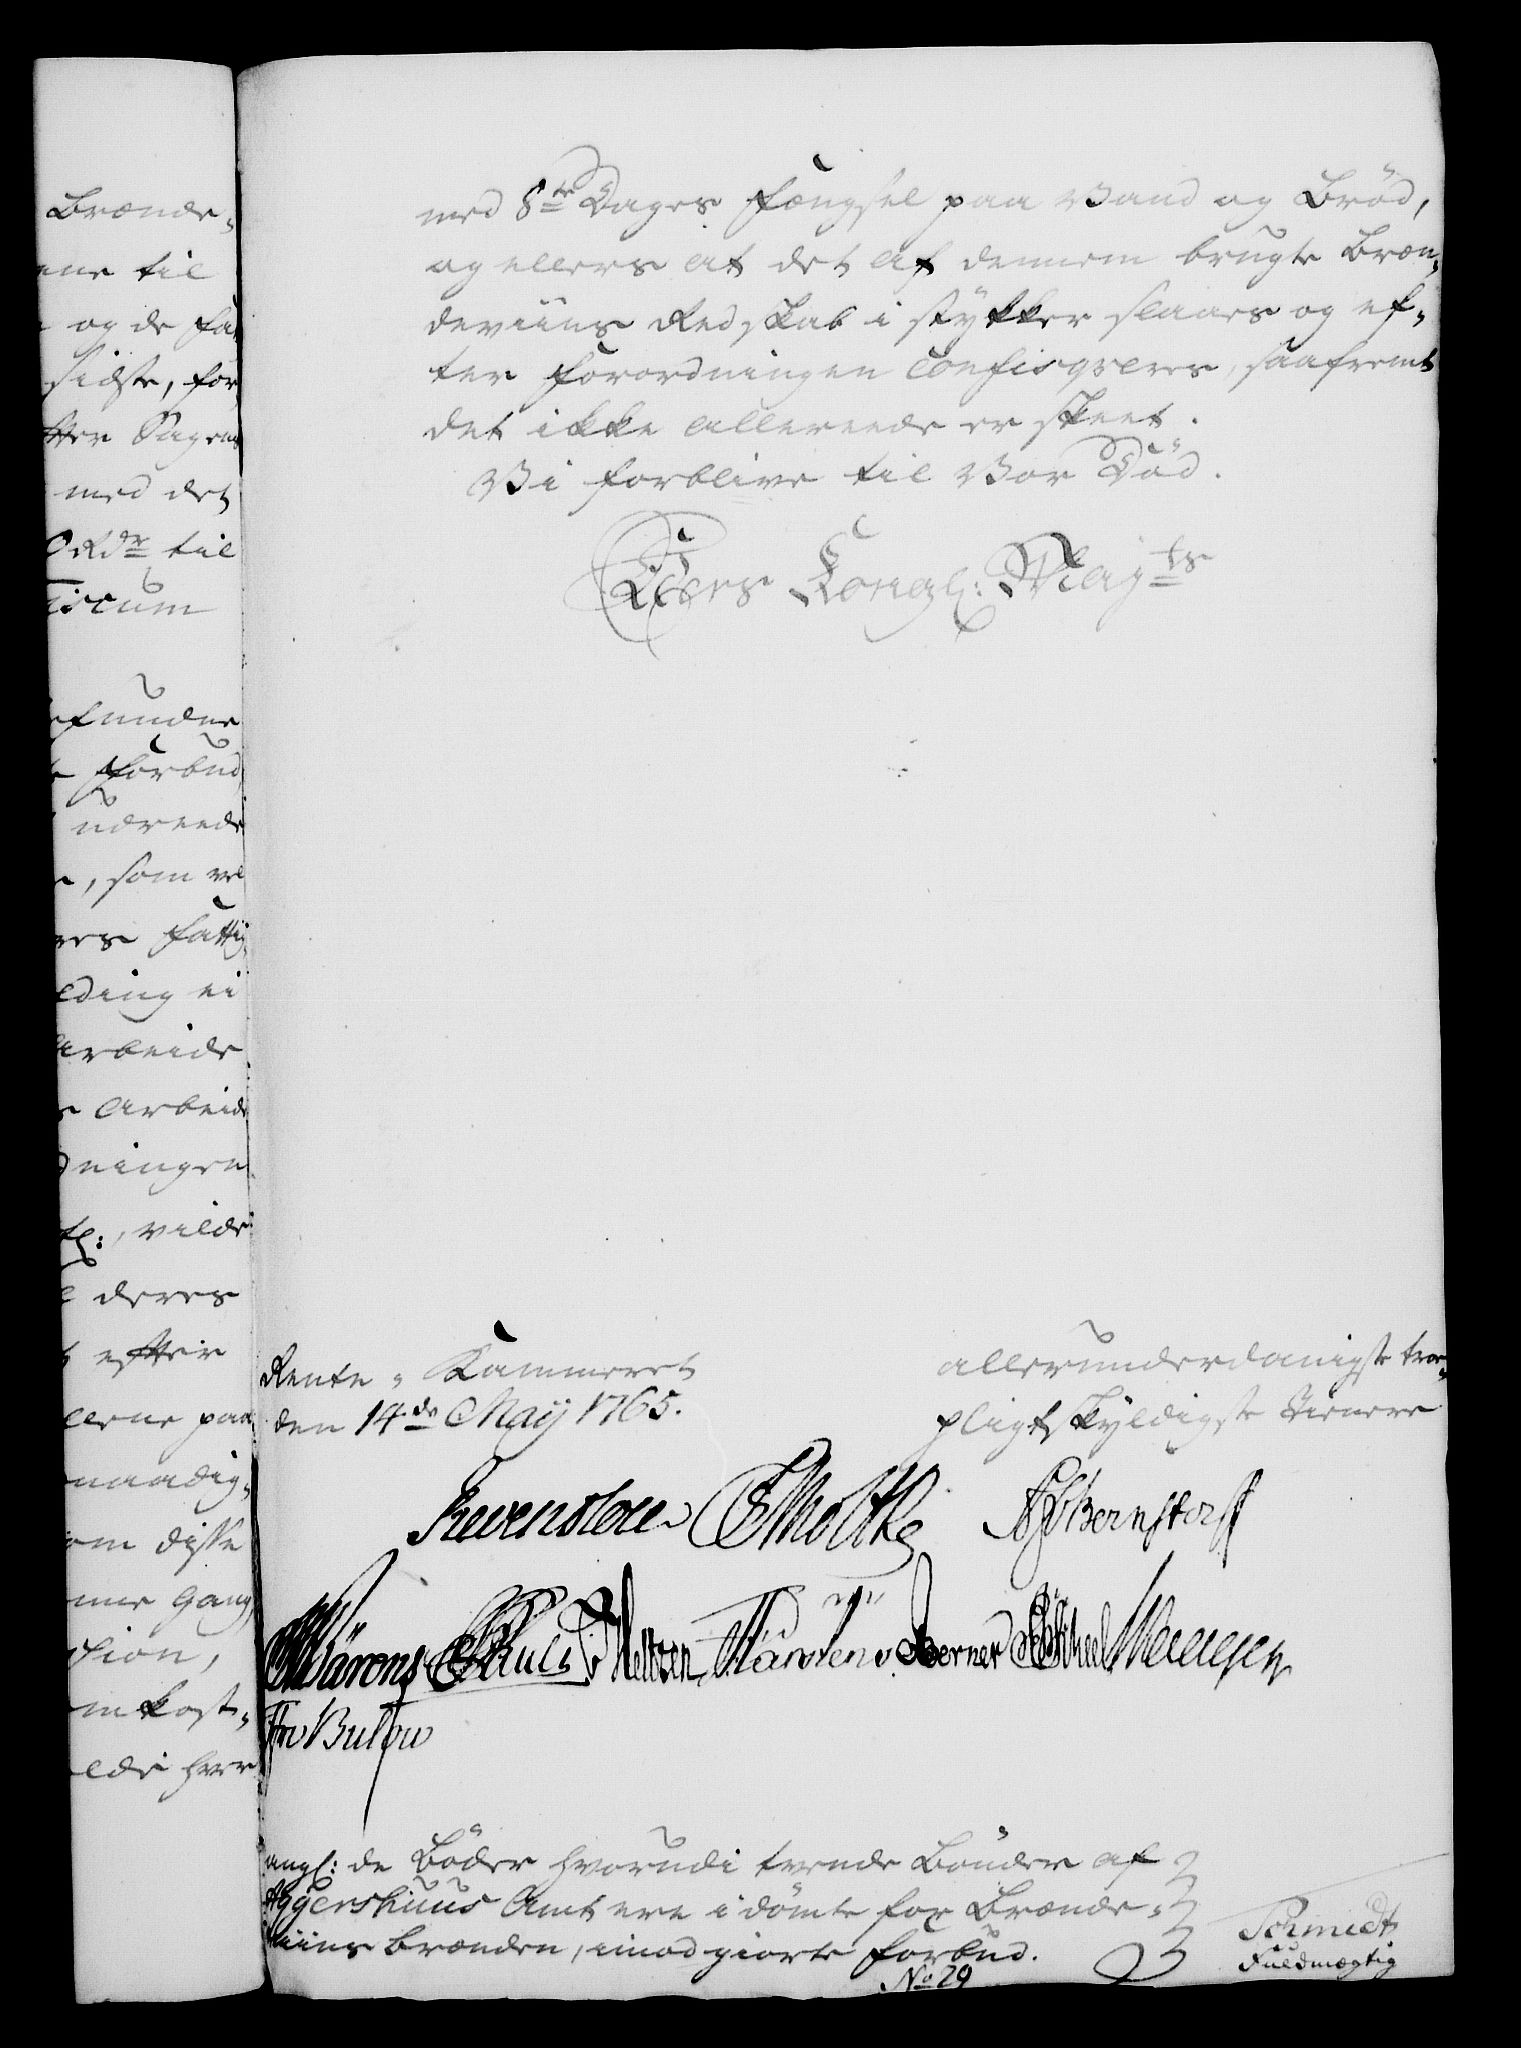 Brænde-
ene til
og de fat
sidste, for
efter Sagens
med det
Ordr til
Fiscum
befundne
Forbud,
udreede
, som vel
res Fattig-
elding ei
Arbeide
s Arbeide
dningen
tl:, vilde
deres
efter
llerne paa
naadig-
om disse
nne Gang
tion,
omkost-
elde hver
med 8te Dages Fængsel paa Vand og Brød,
og ellers at det af dennem brugte Bræn-
deviins Redskab i stykker slaaes og ef-
ter Forordningen confisqveres, saafremt
det ikke allereede er skeet.
Vi forblive til Vor Død.
Eders Kongl: Mayts
Rente-Kammeret
den 14de Maij 1765.
allerunderdanigste troe-
pligtskyldigste Tienere
Reventlow Moltke Bernstorff
Wärens Schulz Heltzen Kärsten Berner Scheel
Bulow
angl: de Bøder hvorudi trende Bønder af
Aggershuus Amt ere idømte for Brænde-
viins Brænden, imod giorte Forbud.
No 29
Schmidt
Fuldmægtig